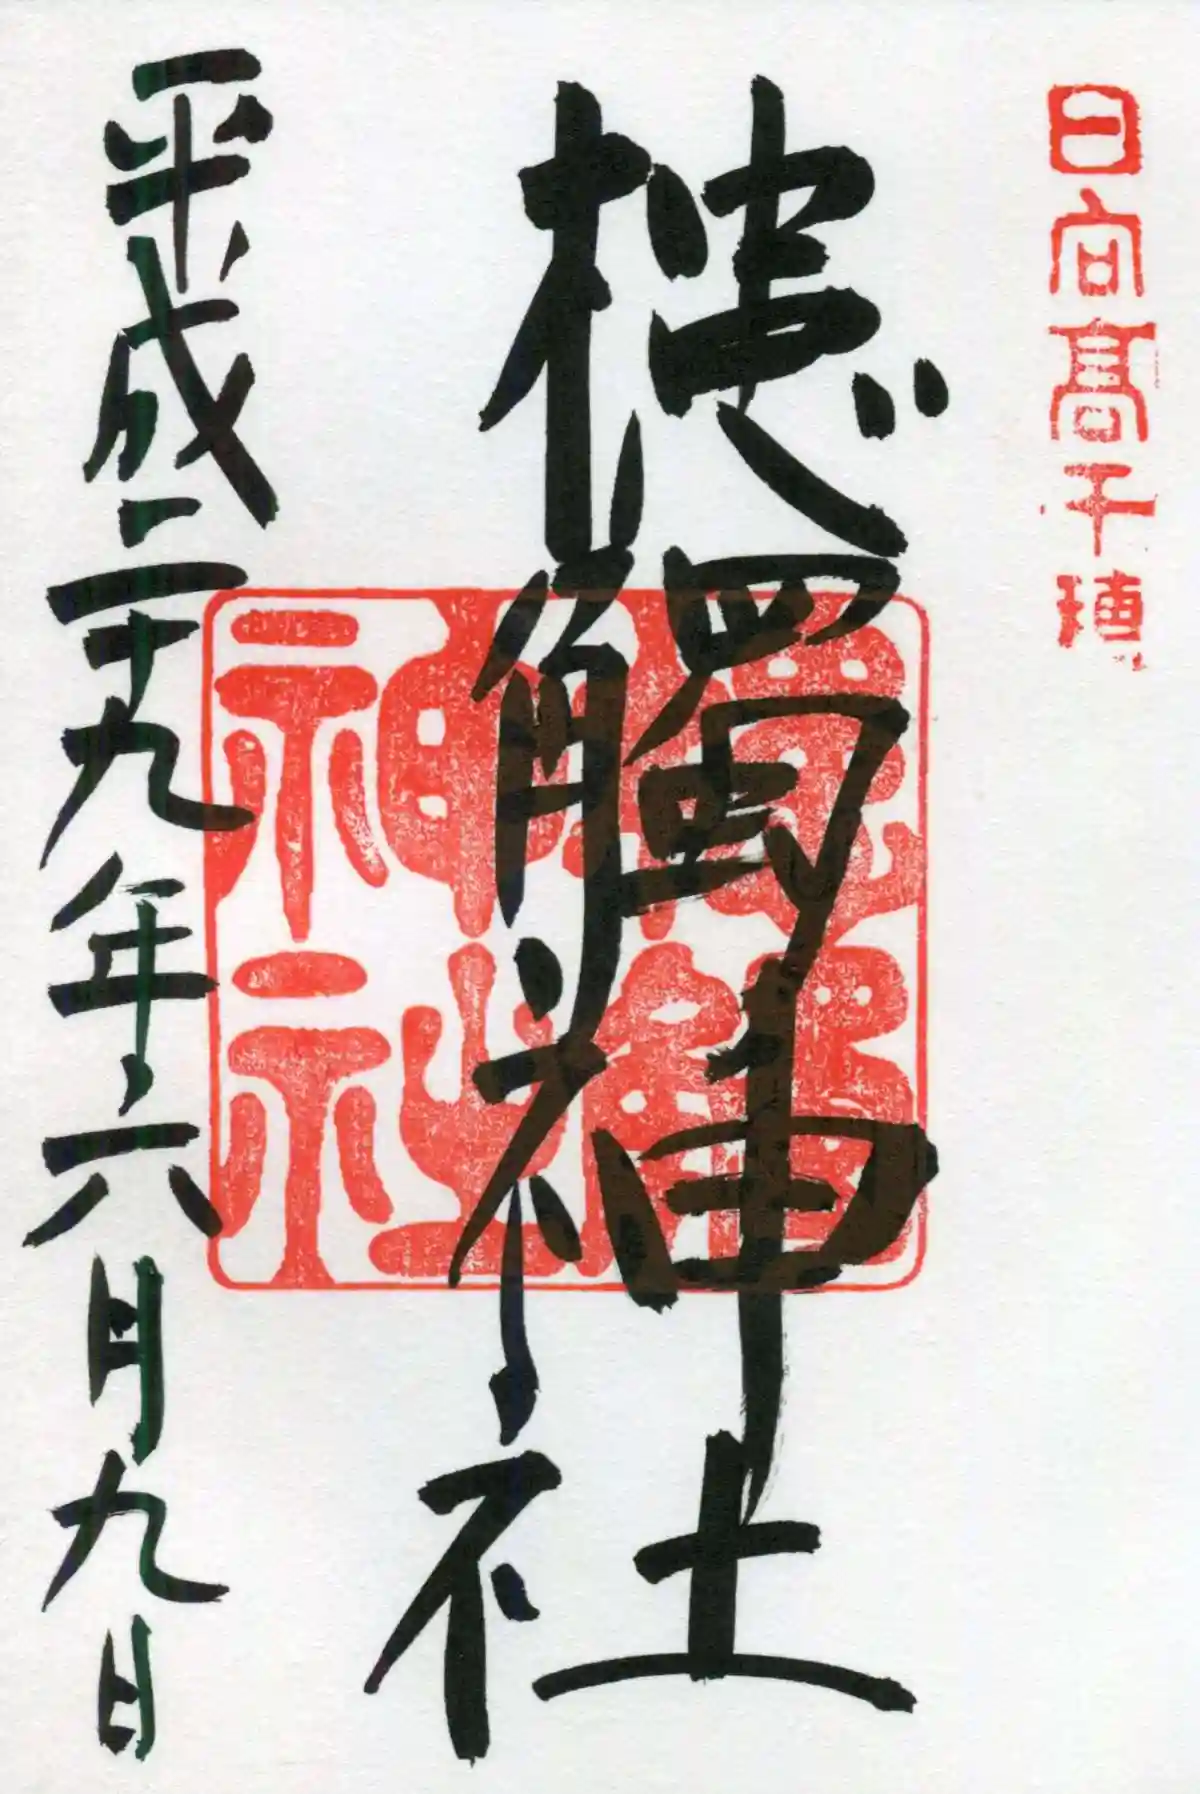 日向高千穂
槵觸神社
平成二十九年六月九日